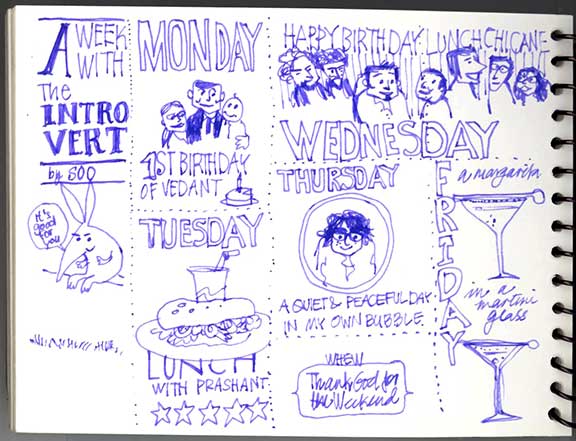 A WEEK
WITH
The
INTRO
VERT
by SOO
It's
good
for
you
MONDAY
1ST BIRTHDAY
OF VEDANT
TUESDAY
LUNCH
WITH PRASHANT
HAPPY BIRTHDAY LUNCH CHICANE
WEDNESDAY
THURSDAY
A QUIET & PEACEFUL DAY
IN MY OWN BUBBLE
WHEW
Thank God for
the Weekend
FRIDAY
a margarita
in a
martini
glass